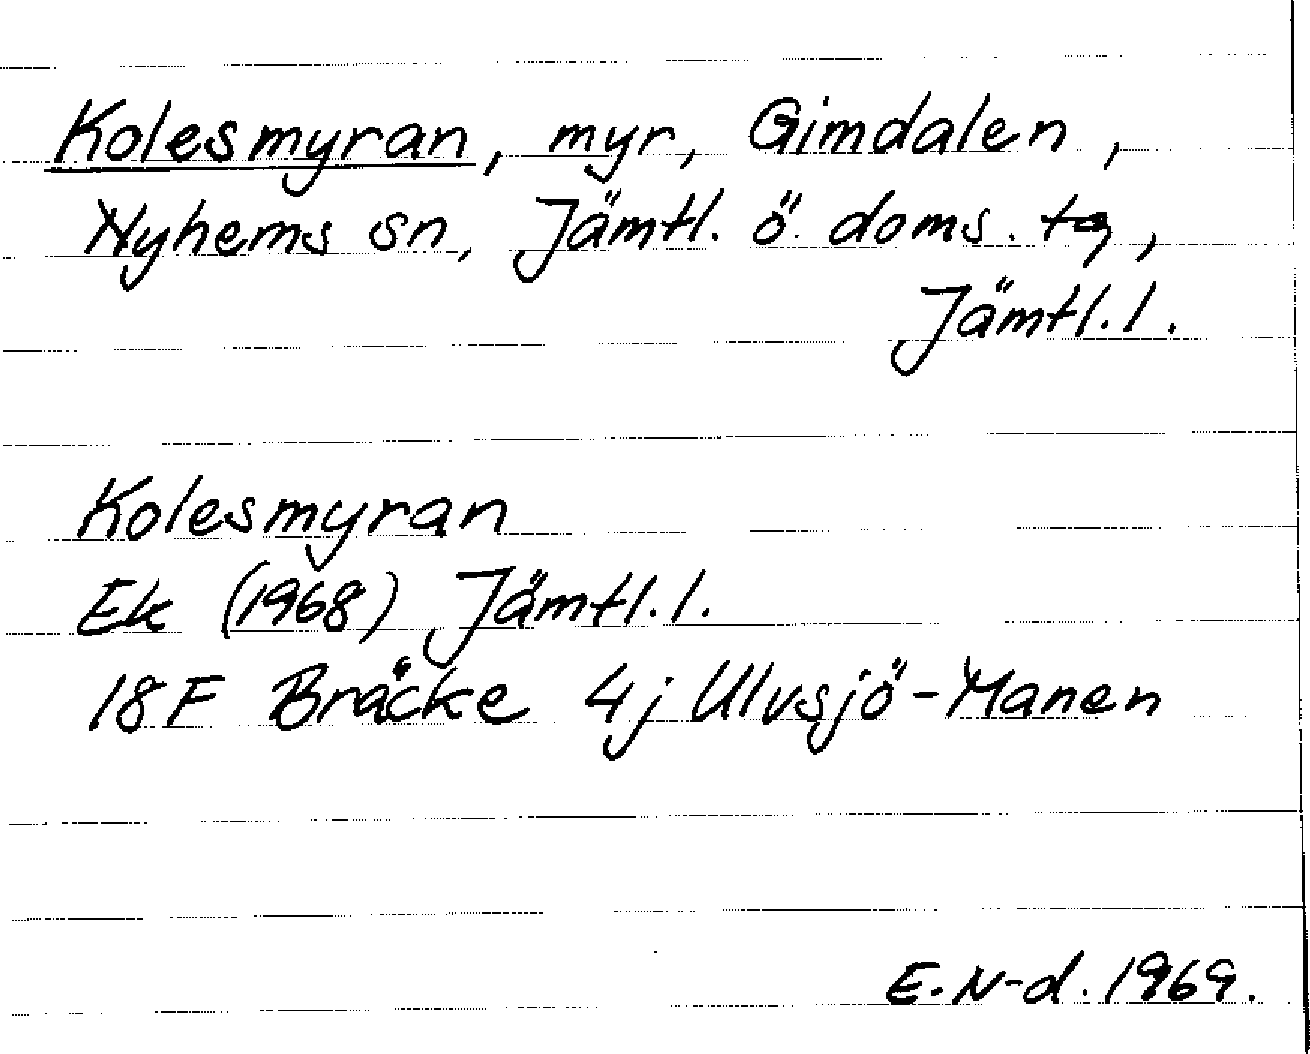 Kolesmyran, myr, Gimdalen,
Nyhems sn, Jämtl. ö. doms. tg,
Jämtl. l.
Kolesmyran
Ek (1968) Jämtl. l.
18F Bräcke 4j Ulvsjö-Manen
E. N-d. 1969.